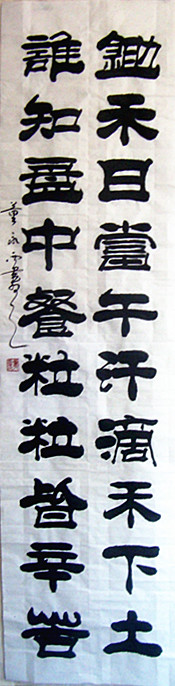 鋤禾日當午汗滴禾下土
誰知盤中餐粒粒皆辛苦